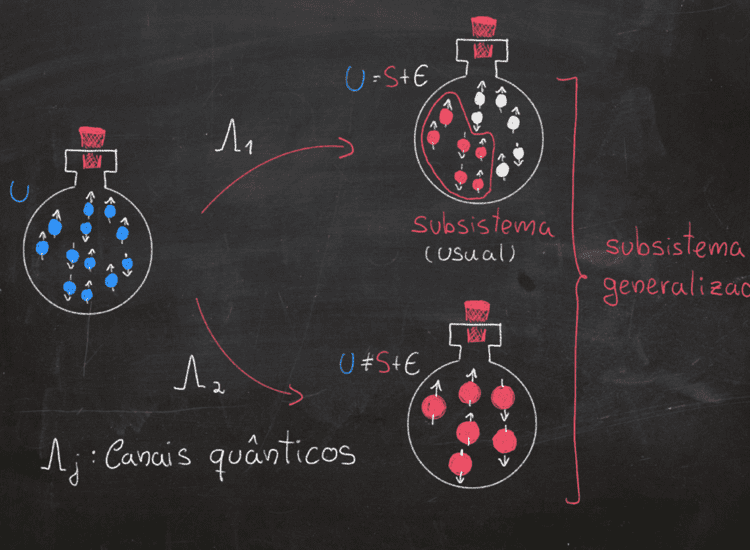 U
Λ1
U = S + E
subsistema
(usual)
subsistema
Λ2
U ≠ S + E
Λj : Canais quânticos